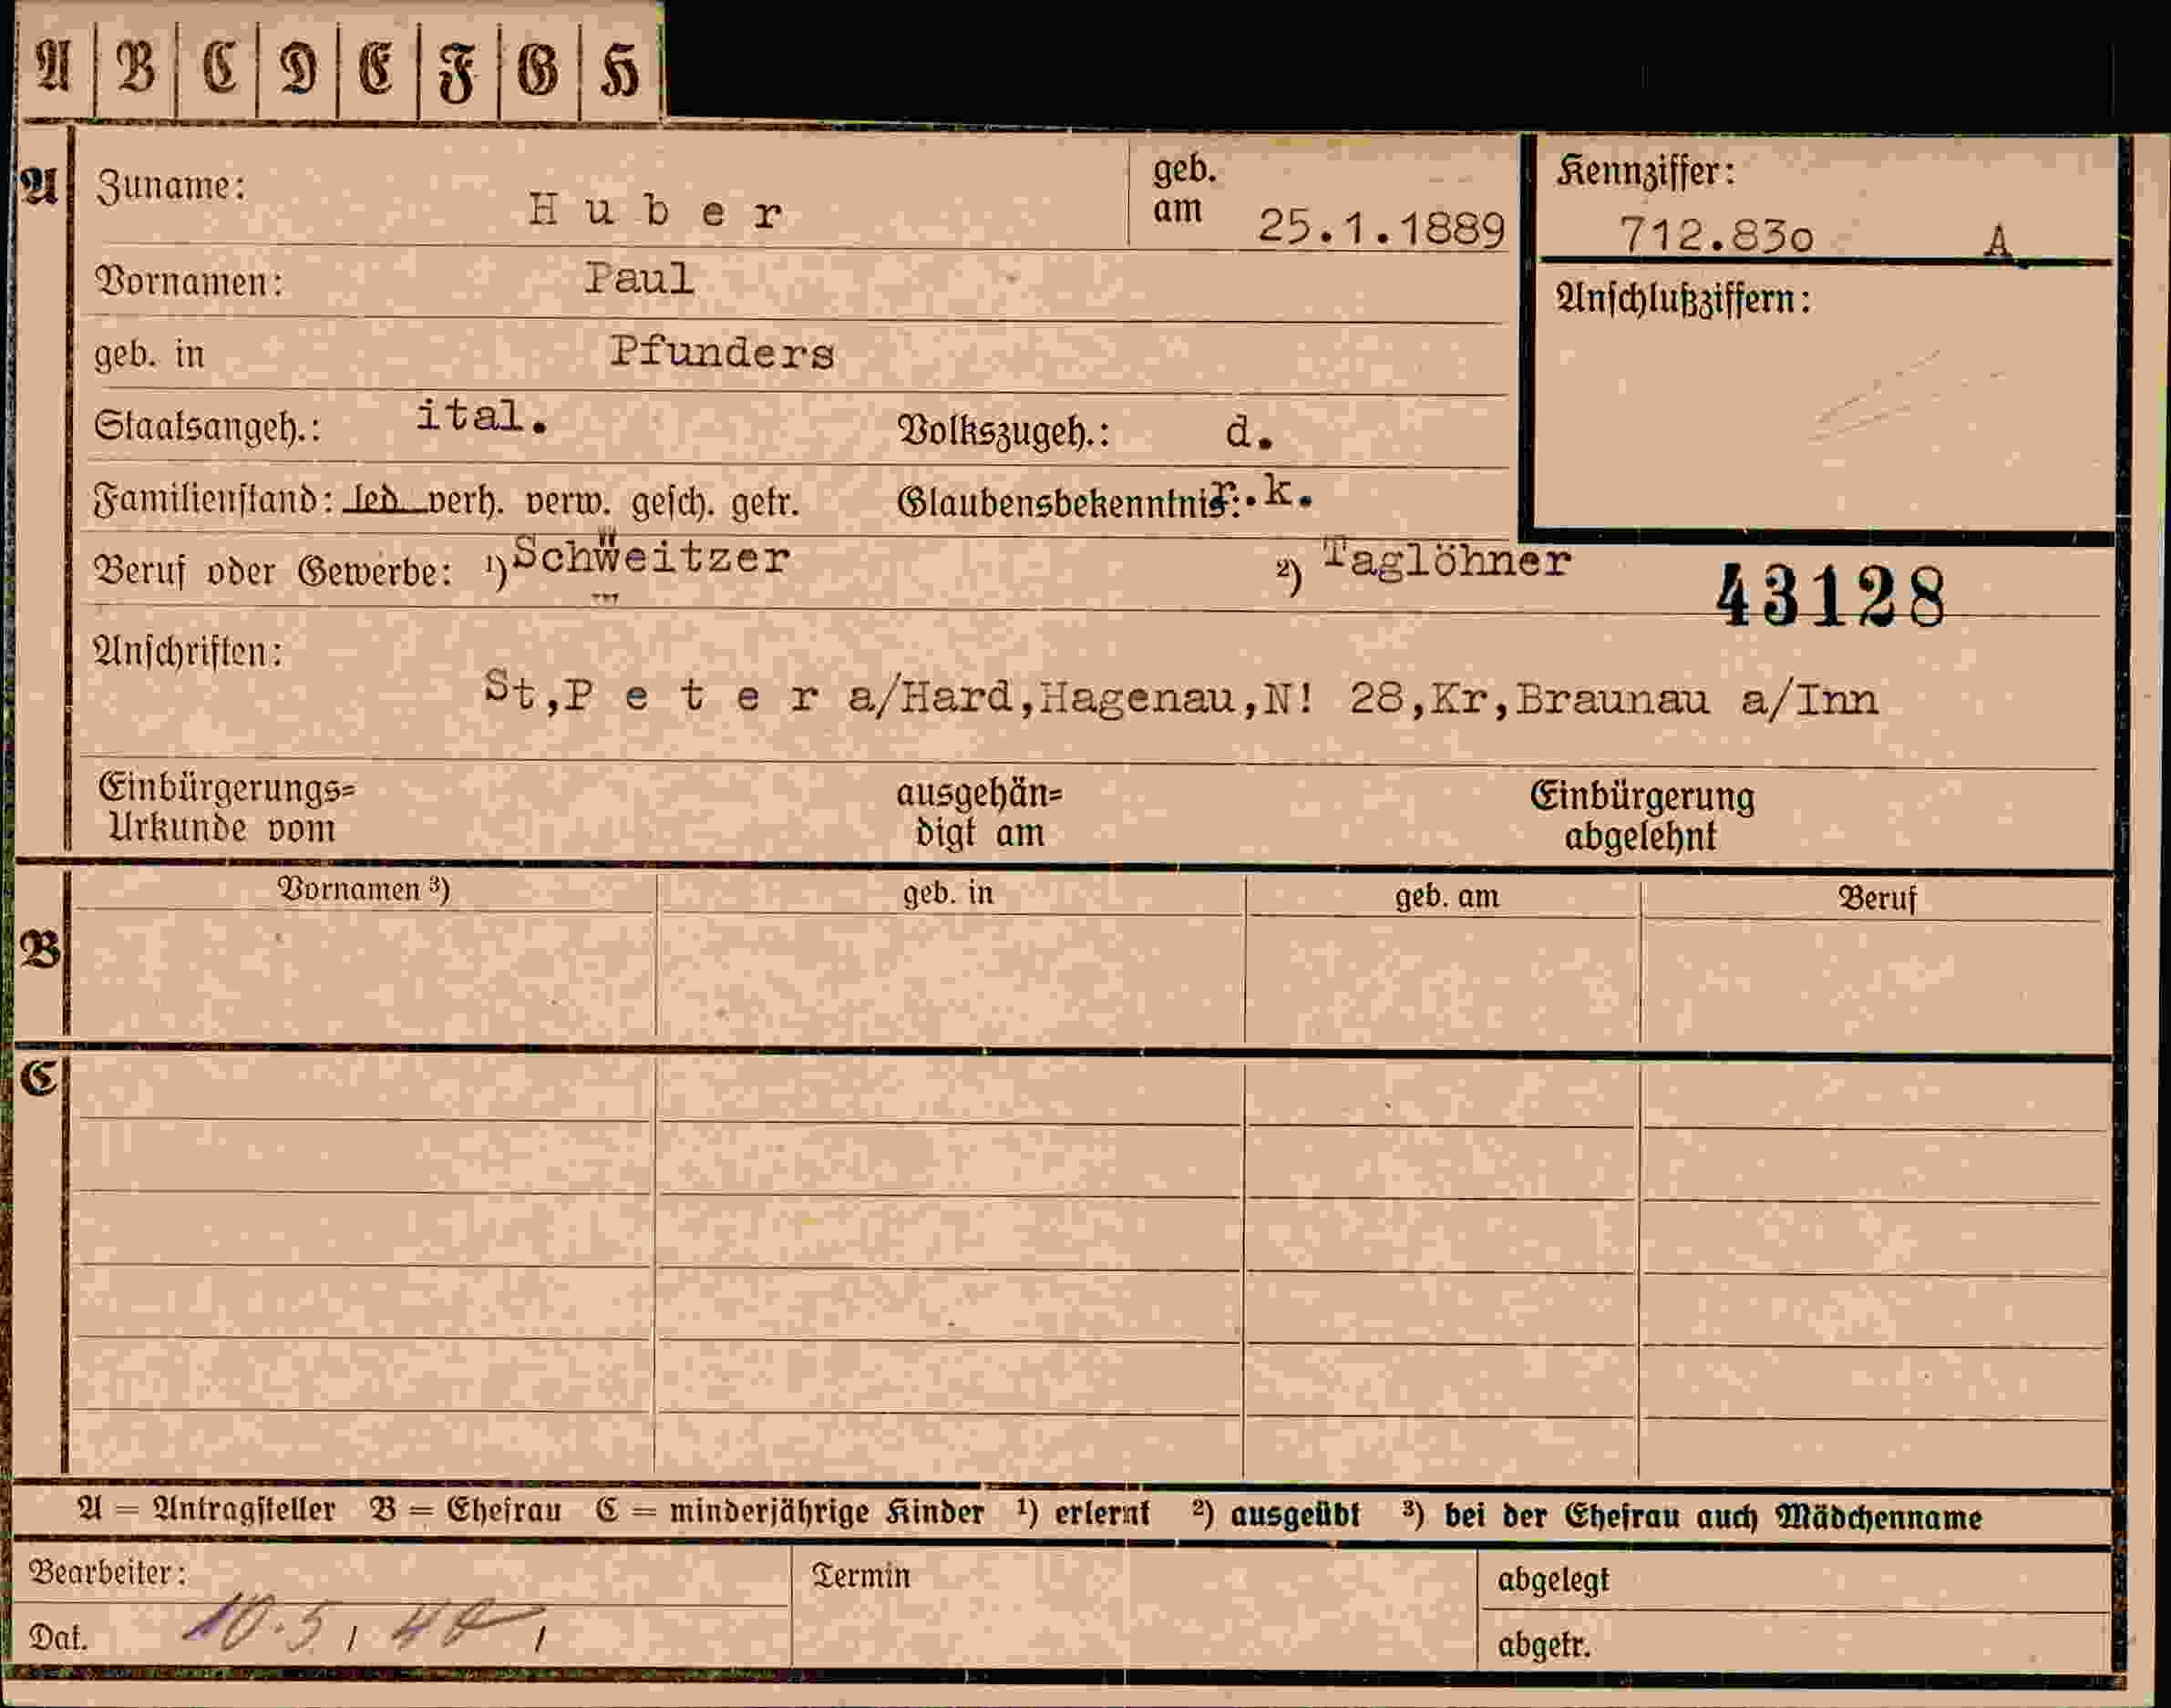 A B C D E F G H
A Zuname: H u b e r geb. am 25.1.1889
Kennziffer: 712.83o A
Vornamen: Paul
Anschlußziffern:
geb. in Pfunders
Staatsangeh.: ital. Volkszugeh.: d.
Familienstand: led. verh. verw. gesch. getr. Glaubensbekenntnis: r.k.
Beruf oder Gewerbe: 1) Schweitzer 2) Taglöhner 43128
Anschriften:
St,P e t e r a/Hard,Hagenau,N! 28,Kr,Braunau a/Inn
Einbürgerungs= ausgehän= Einbürgerung
Urkunde vom digt am abgelehnt
Vornamen 3) geb. in geb. am Beruf
B
C
A = Antragsteller B = Ehefrau C = minderjährige Kinder 1) erlernt 2) ausgeübt 3) bei der Ehefrau auch Mädchenname
Bearbeiter: Termin abgelegt
Dat. 10.5, 40, abgetr.